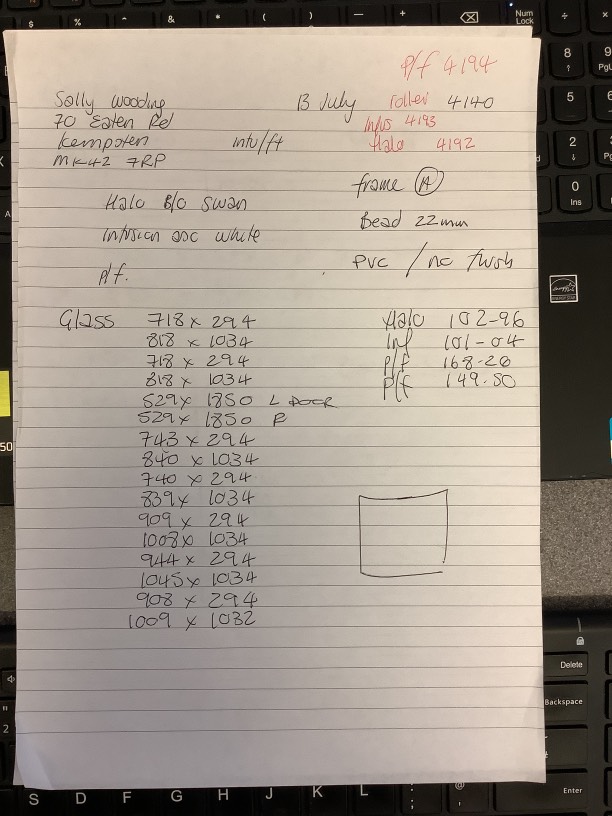 P/f 4194
Sally Wooding 13 July roller 4140
70 Eaten Rd Infus 4193
Kempsten intu/ft Halo 4192
MK42 7RP
frame (A)
Halo B/O Swan
Bead 22mm
Infusion asc white
PVC / no flush
P/f.
Glass 718 x 294 Halo 102-96
818 x 1034 Inf 101-04
718 x 294 P/f 168-20
818 x 1034 P/f 149.50
529 x 1850 L DOOR
529 x 1850 R
743 x 294
840 x 1034
740 x 294
839 x 1034
909 x 294
1008 x 1034
944 x 294
1045 x 1034
908 x 294
1009 x 1032
Delete
Backspace
Enter
S D F G H J K L
Num Lock
8 9
5 6
2
0
Ins